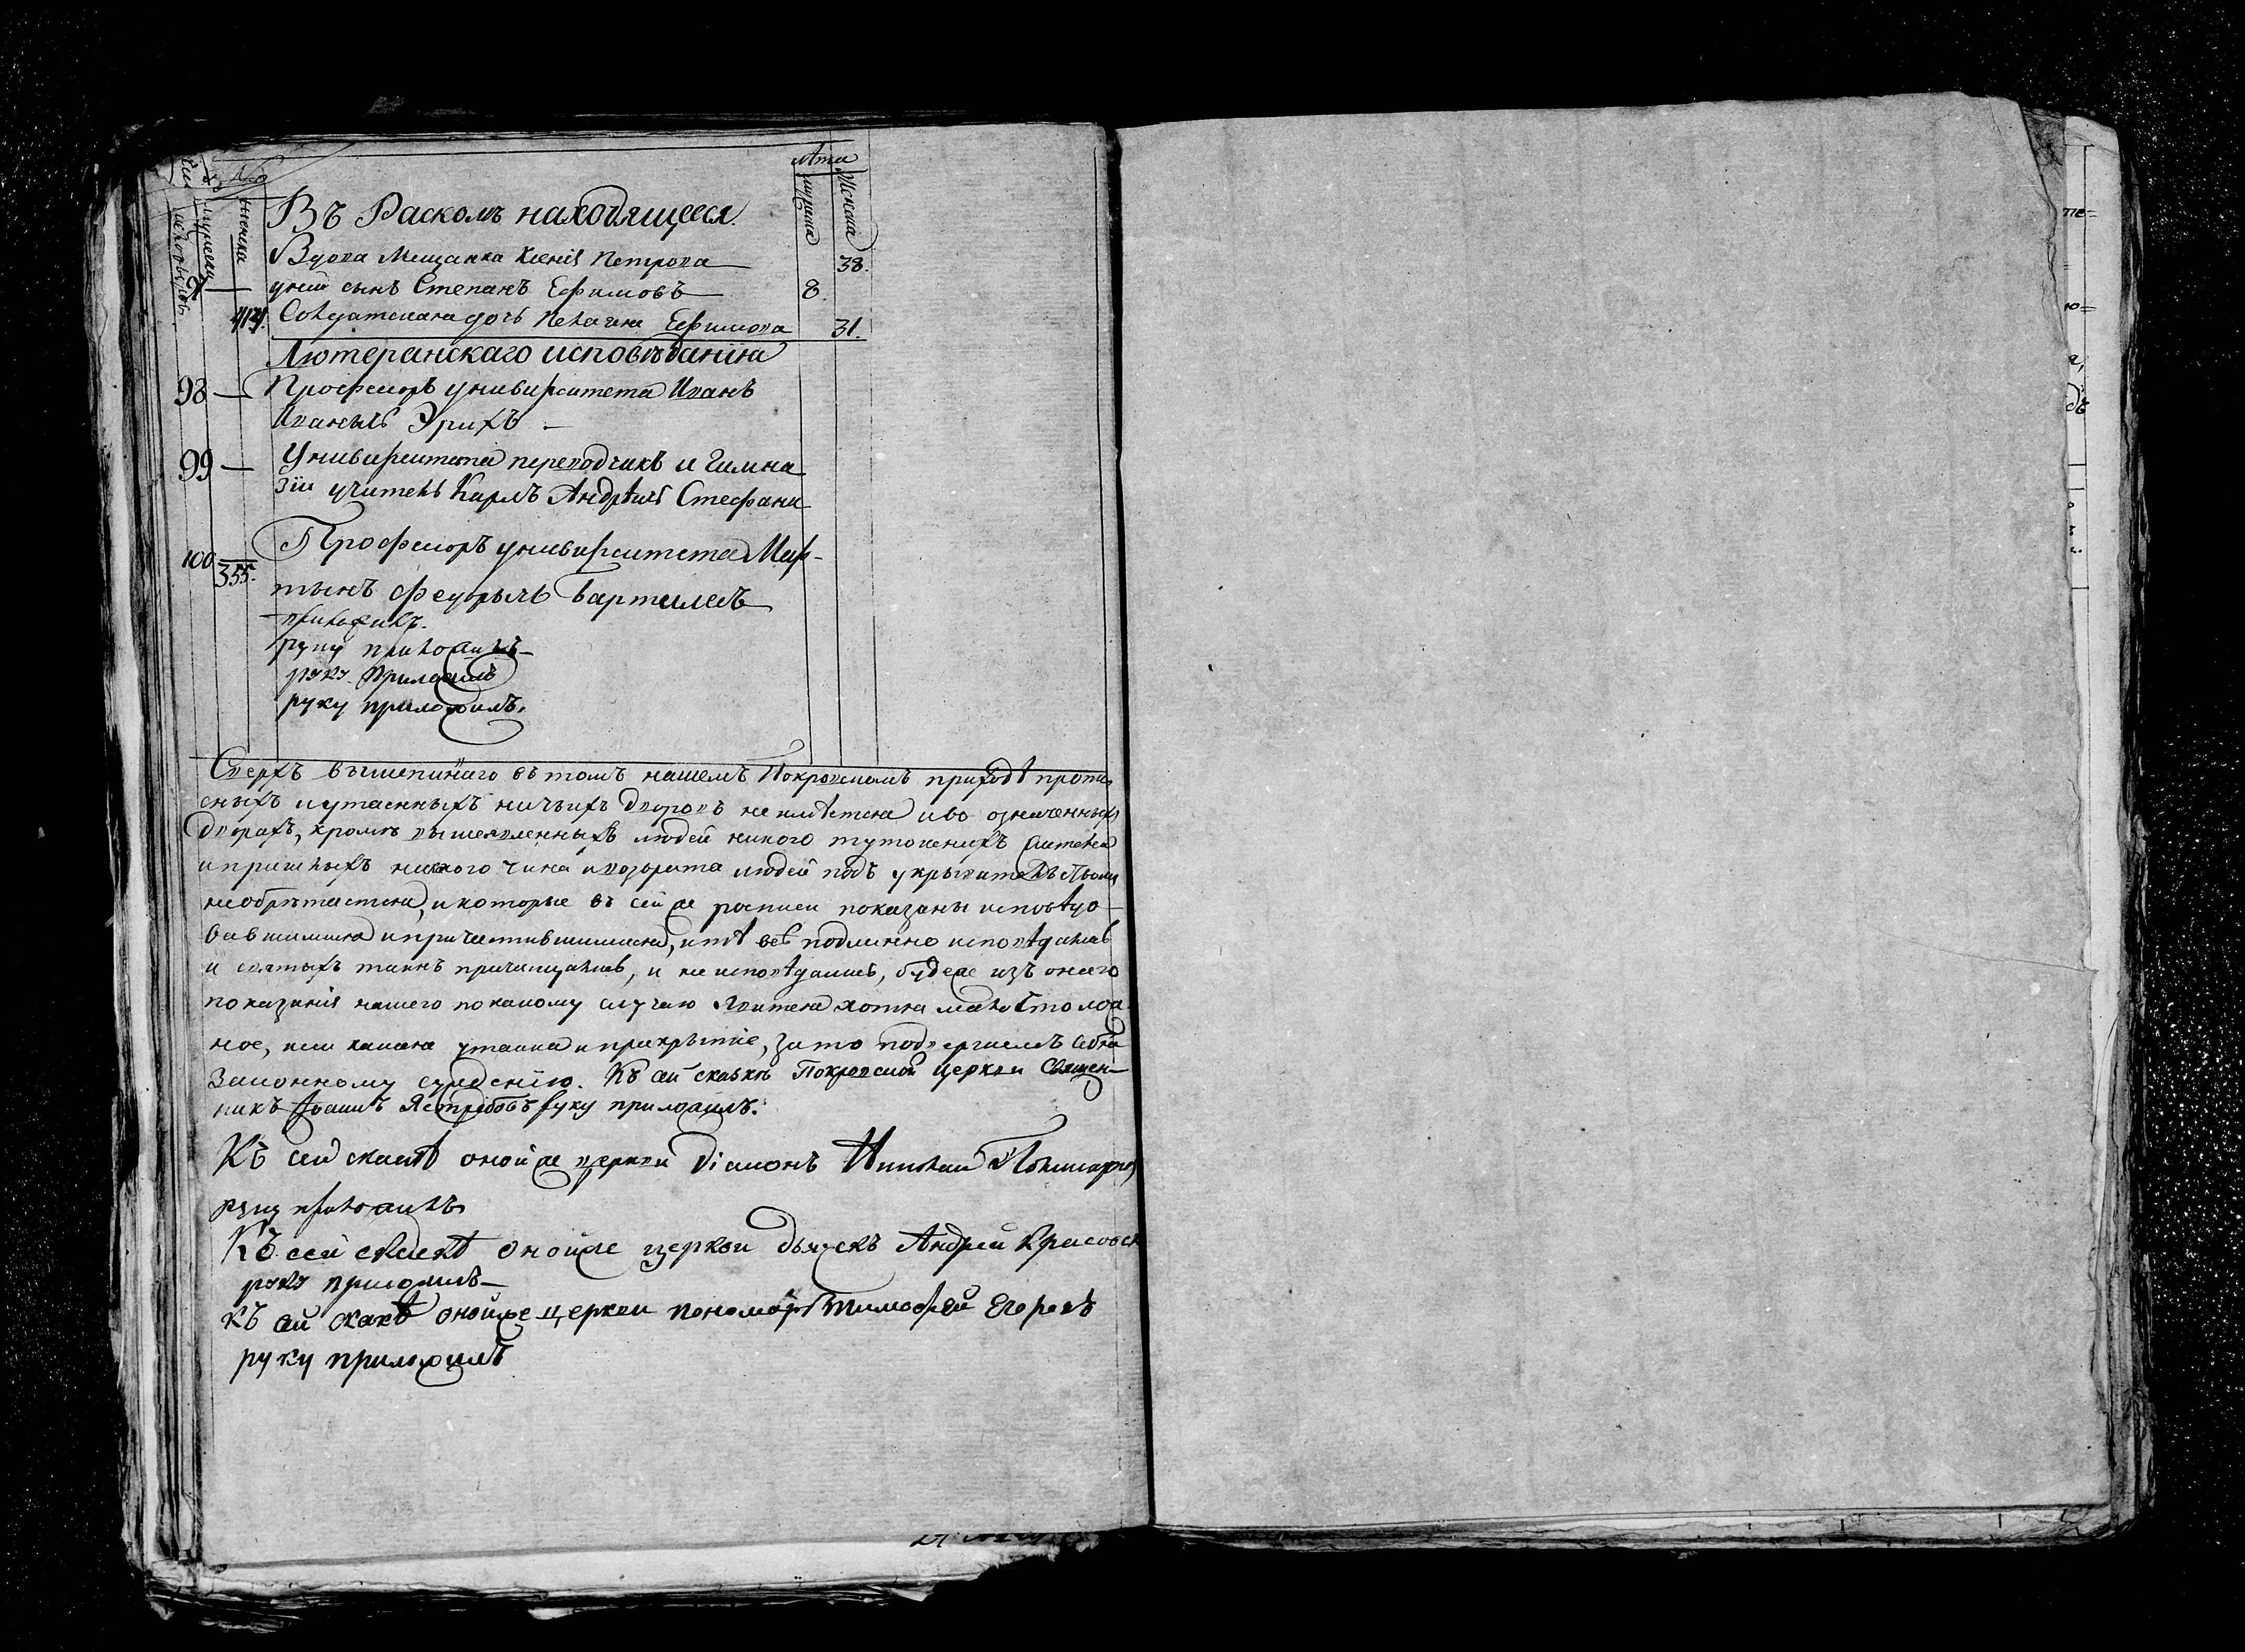 №
Лѣта
мужеска
Женска
мужеска
женска
Въ Расколѣ находящееся.
Вдова Мещанка Ксенія Петрова 38.
97 — уней сынъ Степанъ Ефимовъ 8.
414. Солдатская дочь Пелагея Ефимова 31.
Лютеранскаго исповѣданія
98 — Профессоръ университета Иванъ
Иванычь Эрихъ —
99 — Университета переводчикъ и Гимна
зіи учитель Карлъ Андрѣичь Стефани
100 355. Профессоръ университета Мар-
тынъ Федорычь Бартелсъ
приложилъ.
руку приложилъ
руку приложилъ
руку приложилъ.
Сверхъ вышеписаннаго въ томъ нашемъ Покровскомъ приходѣ
и утаенныхъ ничьихъ дворовъ не имѣется и во означенныхъ
дворахъ, кромѣ вышеявленныхъ людей никого тутошнихъ жителей
и пришлыхъ никакого чина и возраста людей подъ укрывательствомъ
необрѣтается, и которые въ сей же росписи показаны исповѣдо
вавшимися и причастившимися, и тѣ всѣ подлинно исповѣдались
и святыхъ таинъ причащались, и не исповѣдались, буде же изъ онаго
показанія нашего по какому случаю явится хотя мало что лож
ное, или какая утайка и прикрытіе, за то подвергаемъ себя
Законному сужденію. Къ сей сказкѣ Покровской церкви Священ-
никъ Іоаннъ Ястребовъ руку приложилъ.
Къ сей сказкѣ оной же церкви діаконъ Николай
руку приложилъ
Къ сей сказкѣ оной же церкви дьячекъ Андрей Красовск
руку приложилъ —
къ сей скакѣ оной же церкви пономарь Тимофей Егоровъ
руку приложилъ